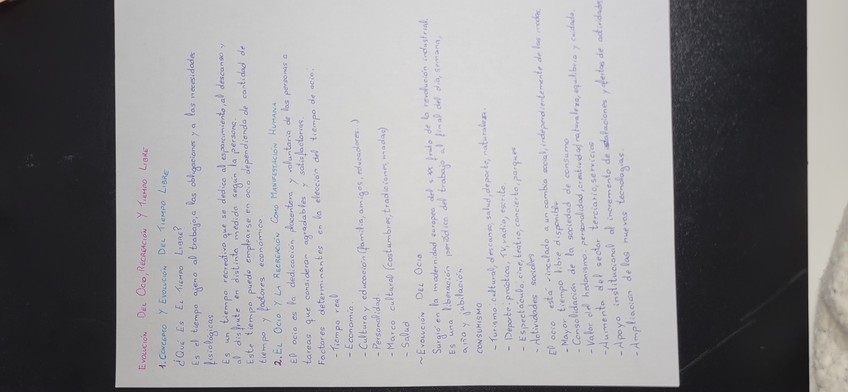 EVOLUCIÓN DEL OCIO, RECREACIÓN Y TIEMPO LIBRE
1. CONCEPTO Y EVOLUCIÓN DEL TIEMPO LIBRE
¿QUÉ ES EL TIEMPO LIBRE?
Es el tiempo ajeno al trabajo, a las obligaciones y a las necesidades
fisiológicas.
Es un tiempo recreativo que se dedica al esparcimiento, al descanso y
al disfrute en distinta medida según la persona.
Este tiempo puede emplearse en ocio dependiendo de cantidad de
tiempo y factores económico
2. EL OCIO Y LA RECREACIÓN COMO MANIFESTACIÓN HUMANA
El ocio es la dedicación placentera y voluntaria de las personas a
tareas que consideran agradables y satisfactorias.
Factores determinantes en la elección del tiempo de ocio:
- Tiempo real
- Economía
- Cultura y educación (familia, amigos, educadores...)
- Personalidad
- Marco cultural (costumbres, tradiciones, modas)
- Salud
~ EVOLUCIÓN DEL OCIO
Surgió en la modernidad europea del s. XIX fruto de la revolución industrial
Es una liberación periódica del trabajo al final del día, semana,
año y jubilación
CONSUMISMO
- Turismo: cultural, descanso, salud, deporte, naturaleza.
- Deporte: práctica, TV, radio, escrito.
- Espectáculo: cine, teatro, concierto, parques
- Actividades sociales
El ocio está vinculado a un cambio social, independientemente de las modas
- Mayor tiempo libre disponible
- Consolidación de la sociedad de consumo
- Valor del hedonismo: personalidad, creatividad, naturaleza, equilibrio y cuidado.
- Aumento del sector terciario, servicios
- Apoyo institucional al incremento de instalaciones y ofertas de actividades
- Ampliación de las nuevas tecnologías.